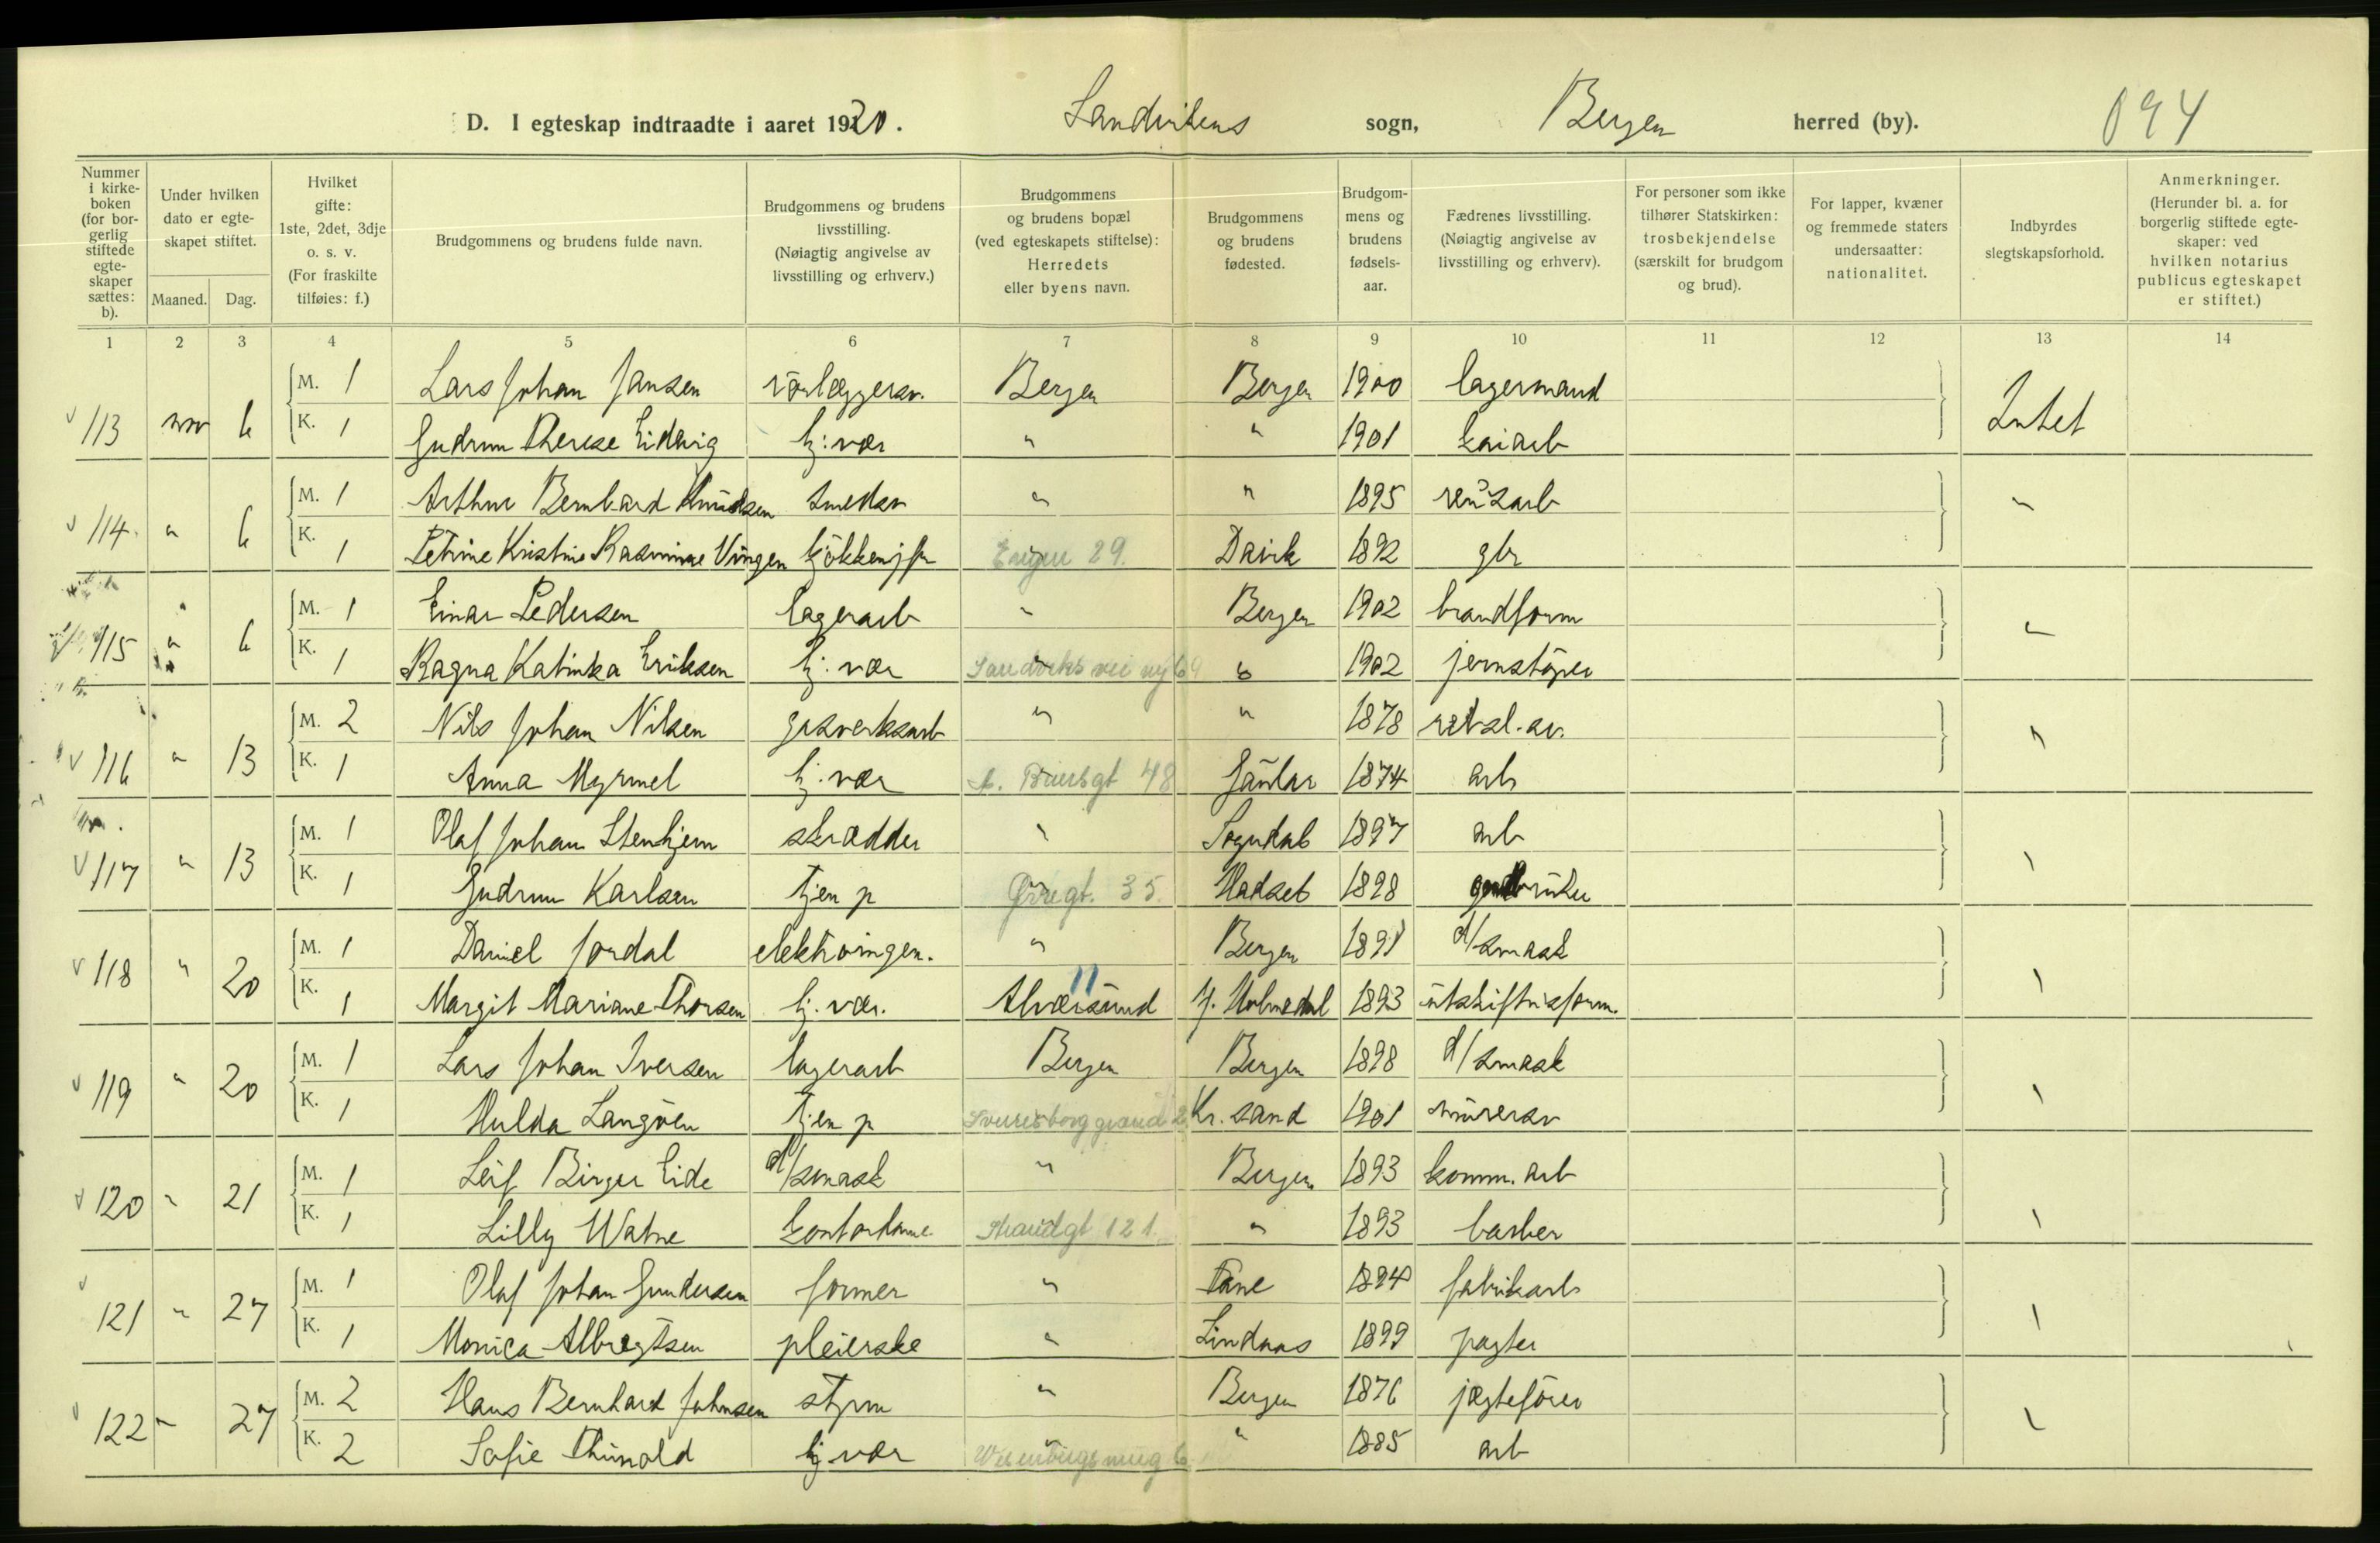 D. I egteskap indtraadte i aaret 1920. Sandvikens sogn, Bergen herred (by). 094
Nummer i kirkeboken (for borgerlig stiftede egteskaper sættes: b).
Under hvilken dato er egteskapet stiftet.
Maaned. Dag.
Hvilket gifte: 1ste, 2det, 3dje o. s. v. (For fraskilte tilføies: f.)
Brudgommens og brudens fulde navn.
Brudgommens og brudens livsstilling. (Nøiagtig angivelse av livsstilling og erhverv.)
Brudgommens og brudens bopæl (ved egteskapets stiftelse): Herredets eller byens navn.
Brudgommens og brudens fødested.
Brudgommens og brudens fødselsaar.
Fædrenes livsstilling. (Nøiagtig angivelse av livsstilling og erhverv).
For personer som ikke tilhører Statskirken: trosbekjendelse (særskilt for brudgom og brud).
For lapper, kvæner og fremmede staters undersaatter: nationalitet.
Indbyrdes slegtskapsforhold.
Anmerkninger. (Herunder bl. a. for borgerlig stiftede egteskaper: ved hvilken notarius publicus egteskapet er stiftet.)
1 2 3 4 5 6 7 8 9 10 11 12 13 14
113 nov 6 M. 1 Lars Johan Jansen rörlæggersv. Bergen Bergen 1900 lagermand Intet
K. 1 Gudrun Therese Eidsvig hj: vær " " 1901 kaiarb
114 " 6 M. 1 Arthur Bernhard Knudsen smedsv " " 1895 renh.arb "
K. 1 Petrine Kristine Rasmine Vingen kjökkenjfr Engen 29. Davik 1892 gbr
115 " 6 M. 1 Einar Pedersen lagerarb " Bergen 1902 brandform "
K. 1 Ragna Katinka Eriksen hj: vær Sandviksvei ny 69 " 1902 jernstöper
116 " 13 M. 2 Nils Johan Nilsen gasverksarb " " 1878 "
K. 1 Anna Myrmel hj: vær 48 Gaular 1874 arb
117 " 13 M. 1 Olaf Johan Stenhjem skrædder " Sogndal 1897 arb "
K. 1 Gudrun Karlsen tjen p Øvregt. 35. Hadsel 1898 gardbruker
118 " 20 M. 1 Daniel Jordal elektroingen. " Bergen 1891 d/smask "
K. 1 Margit Mariane Thorsen hj. vær. Alværsund Y. Holmedal 1893 utskiftnisform.
119 " 20 M. 1 Lars Johan Iversen lagerarb Bergen Bergen 1898 d/smask "
K. 1 Hulda Langöen tjen p Sverresborg grænd 2 Kr. sand 1901 murersv
120 " 21 M. 1 Leif Birger Eide d/smask " Bergen 1893 komm. arb "
K. 1 Lilly Watne kontordame Strandgt 121. " 1893 barber
121 " 27 M. 1 Olaf Johan Gundersen former " Fane 1894 fabrikarb "
K. 1 Monica Albregtsen pleierske " Lindaas 1899 pagter
122 " 27 M. 2 Hans Bernhard Johnsen styrm " Bergen 1876 jægtefører "
K. 2 Sofie Thunold hj vær Wesenbergsmug 6 " 1885 arb